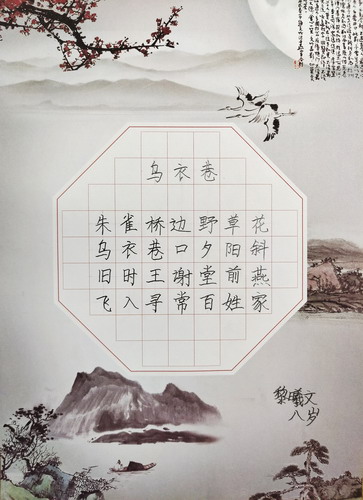 乌衣巷
朱雀桥边野草花
乌衣巷口夕阳斜
旧时王谢堂前燕
飞入寻常百姓家
黎曦文
八岁